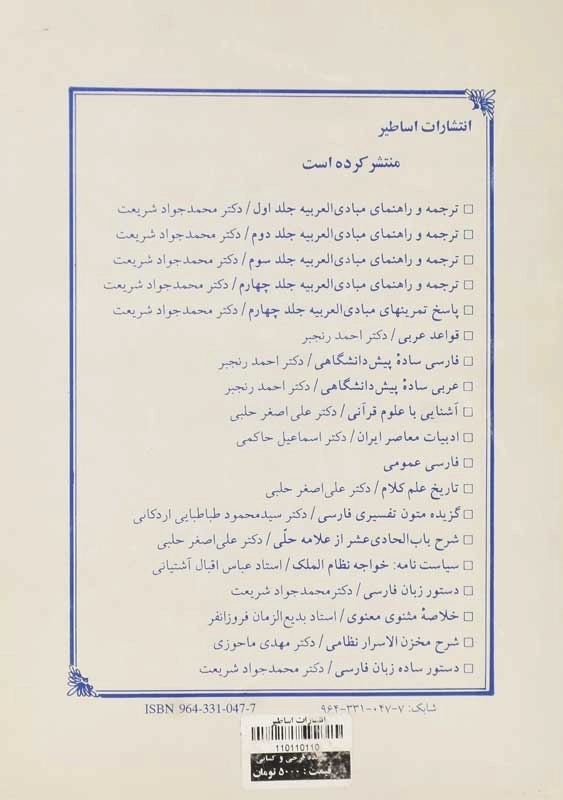 انتشارات اساطیر
منتشر کرده است
□ ترجمه و راهنمای مبادی‌العربیه جلد اول / دکتر محمدجواد شریعت
□ ترجمه و راهنمای مبادی‌العربیه جلد دوم / دکتر محمدجواد شریعت
□ ترجمه و راهنمای مبادی‌العربیه جلد سوم / دکتر محمدجواد شریعت
□ ترجمه و راهنمای مبادی‌العربیه جلد چهارم / دکتر محمدجواد شریعت
□ پاسخ تمرینهای مبادی‌العربیه جلد چهارم / دکتر محمدجواد شریعت
□ قواعد عربی / دکتر احمد رنجبر
□ فارسی سادهٔ پیش‌دانشگاهی / دکتر احمد رنجبر
□ عربی سادهٔ پیش‌دانشگاهی / دکتر احمد رنجبر
□ آشنایی با علوم قرآنی / دکتر علی اصغر حلبی
□ ادبیات معاصر ایران / دکتر اسماعیل حاکمی
□ فارسی عمومی
□ تاریخ علم کلام / دکتر علی‌اصغر حلبی
□ گزیده متون تفسیری فارسی / دکتر سیدمحمود طباطبایی اردکانی
□ شرح باب‌الحادی‌عشر از علامه حلّی / دکتر علی‌اصغر حلبی
□ سیاست نامه: خواجه نظام الملک / استاد عباس اقبال آشتیانی
□ دستور زبان فارسی / دکترمحمدجواد شریعت
□ خلاصهٔ مثنوی معنوی / استاد بدیع‌الزمان فروزانفر
□ شرح مخزن الاسرار نظامی / دکتر مهدی ماحوزی
□ دستور ساده زبان فارسی / دکتر محمدجواد شریعت
شابک: ۷-۰۴۷-۳۳۱-۹۶۴ ISBN 964-331-047-7
انتشارات اساطیر
110110110
قیمت : ۵۰۰۰ تومان